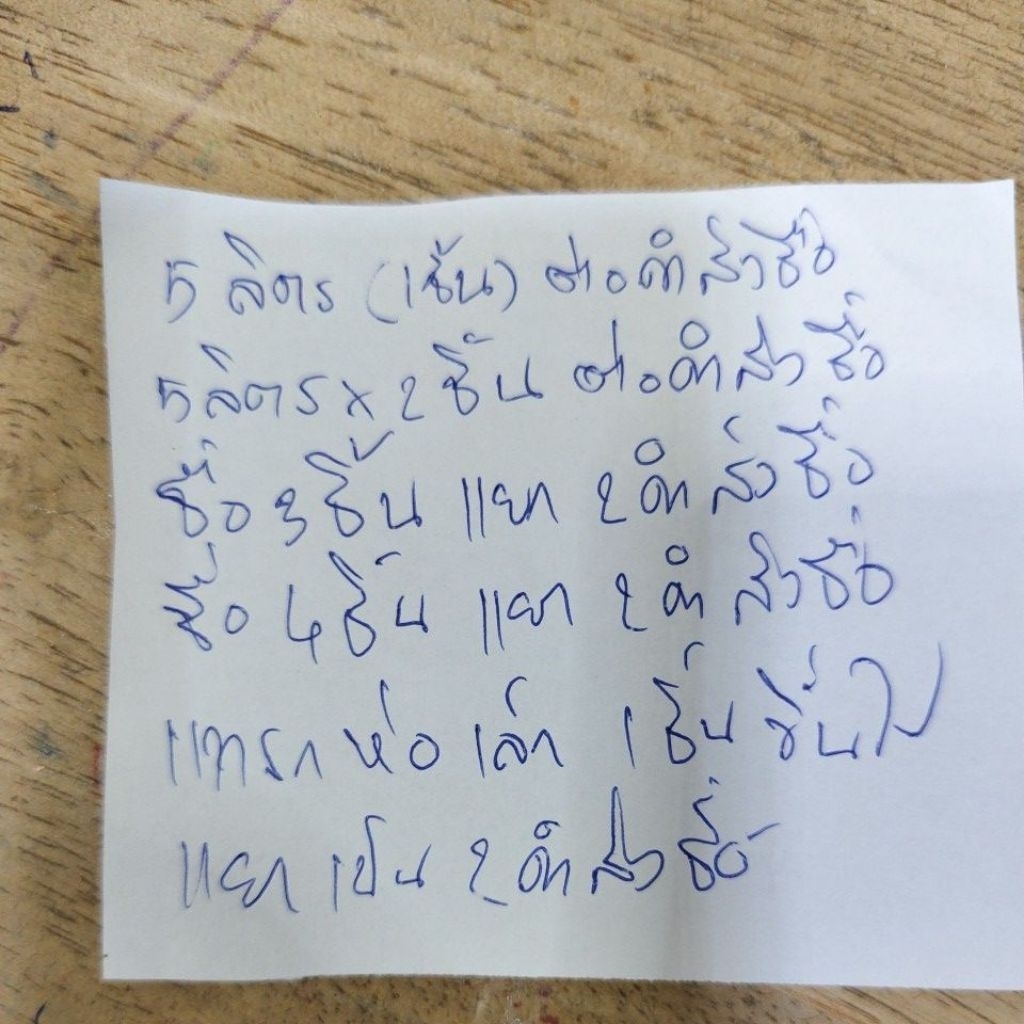 5 ลิตร (1ชิ้น) ต่อคำสั่งซื้อ
5 ลิตร x 2 ชิ้น ต่อคำสั่งซื้อ
ซื้อ 3 ชิ้น แยก 2 คำสั่งซื้อ
ซื้อ 4 ชิ้น แยก 2 คำสั่งซื้อ
แทรก ห่อ เล็ก 1 ชิ้น ขึ้นไป
แยก เป็น 2 คำสั่งซื้อ